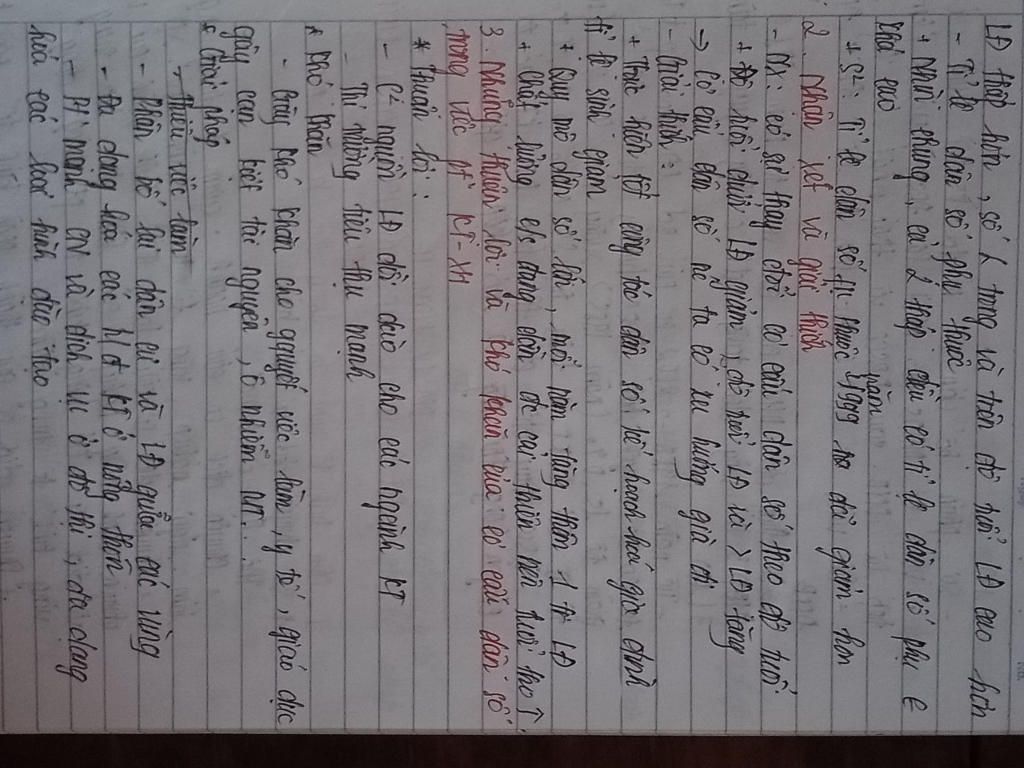 LĐ thấp hơn, số L trong và trên độ tuổi LĐ cao hơn
- Tỉ lệ dân số phụ thuộc
+ Nhìn chung, cả 2 tháp đều có tỉ lệ dân số phụ €
khá cao
+ S²: Tỉ lệ dân số phụ thuộc năm 1999 đã giảm hơn
2. Nhận xét và giải thích
- NX: có sự thay đổi cơ cấu dân số theo độ tuổi
+ Độ tuổi dưới LĐ giảm, độ tuổi LĐ và > LĐ tăng
→ Cơ cấu dân số nc ta có xu hướng già đi
- Giải thích:
+ Thực hiện tốt công tác dân số kế hoạch hoá gia đình
tỉ lệ sinh giảm
+ Quy mô dân số lớn, mỗi năm tăng thêm 1 tr LĐ
+ Chất lượng c/s đang dần đc cải thiện nên tuổi thọ ↑
3. Những thuận lợi và khó khăn của cơ cấu dân số
trong việc pt KT-XH
* Thuận lợi:
- C² nguồn LĐ dồi dào cho các ngành KT
- Thị trường tiêu thụ mạnh
* Khó khăn
- Gây khó khăn cho giải quyết việc làm, y tế, giáo dục
gây cạn kiệt tài nguyên, ô nhiễm MT..
* Giải pháp
- Thiếu việc làm
- Phân bố lại dân cư và LĐ giữa các vùng
- Đa dạng hoá các h/đ KT ở nông thôn
- PT mạnh CN và dịch vụ ở đô thị, đa dạng
hoá các loại hình đào tạo